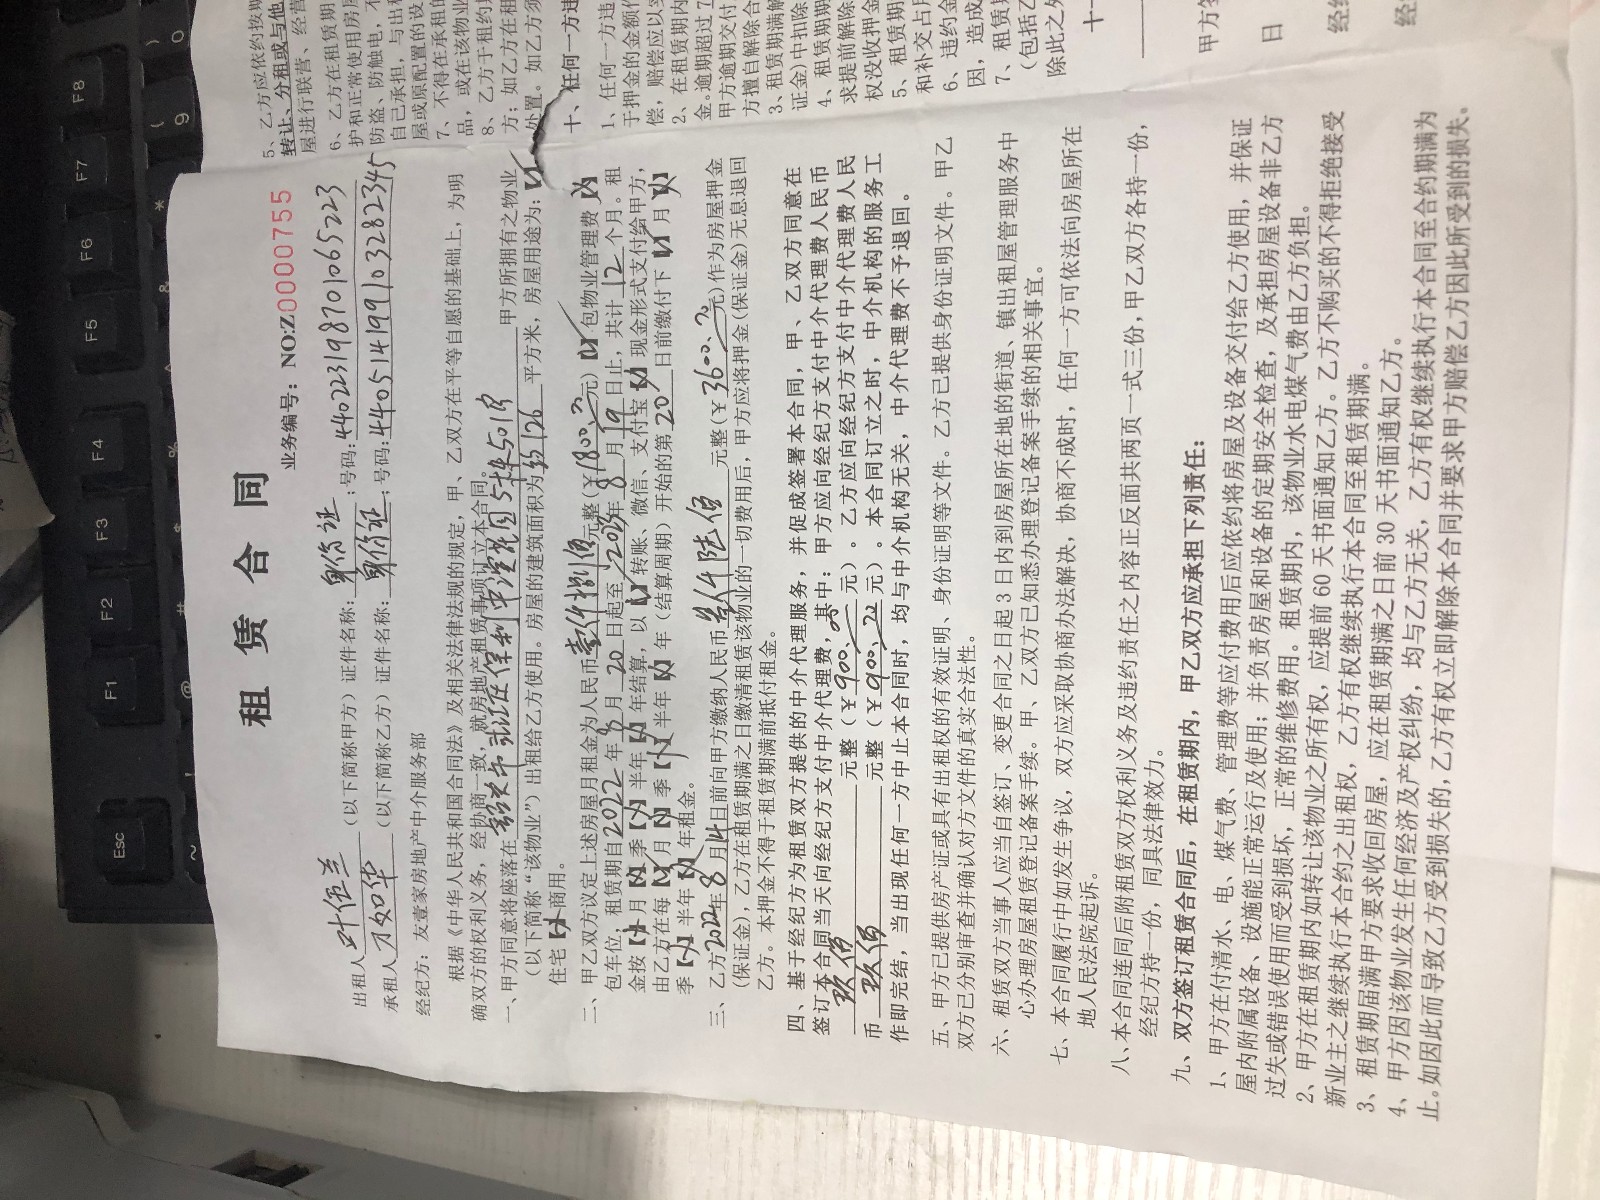 租 赁 合 同
业务编号：NO:Z0000755
出租人叶伍兰（以下简称甲方）证件名称：身份证;号码:440223198701065223
承租人 如华（以下简称乙方）证件名称：身份证;号码:440514199103282345
经纪方：友壹家房地产中介服务部
根据《中华人民共和国合同法》及相关法律法规的规定，甲、乙双方在平等自愿的基础上，为明
确双方的权利义务，经协商一致，就房地产租赁事项订立本合同。
一、甲方同意将座落在韶关市 保利中 花园5栋501房 甲方所拥有之物业
（以下简称“该物业”）出租给乙方使用。房屋的建筑面积为约126平方米，房屋用途为：【√】
住宅【 】商用。
二、甲乙双方议定上述房屋月租金为人民币壹仟捌佰元整（¥1800.00元）【 】包物业管理费【 】
包车位，租赁期自2022年8月20日起至2023年8月19日止，共计12个月。租
金按【 】月【 】季【 】半年【 】年结算，以【 】转账、微信、支付宝【 】现金形式支付给甲方，
由乙方在每【 】月【 】季【 】半年【 】年（结算周期）开始的第20日前缴付下【 】月【 】
季【 】半年【 】年租金。
三、乙方2022年8月14日前向甲方缴纳人民币叁仟陆佰元整(¥3600.00元)作为房屋押金
(保证金)，乙方在租赁期满之日缴清租赁该物业的一切费用后，甲方应将押金(保证金)无息退回
乙方。本押金不得于租赁期满前抵付租金。
四、基于经纪方为租赁双方提供的中介代理服务，并促成签署本合同，甲、乙双方同意在
签订本合同当天向经纪方支付中介代理费，其中：甲方应向经纪方支付中介代理费人民币
玖佰元整（¥900.00元）。乙方应向经纪方支付中介代理费人民
币玖佰元整（¥900.00元）。本合同订立之时，中介机构的服务工
作即完结，当出现任何一方中止本合同时，均与中介机构无关，中介代理费不予退回。
五、甲方已提供房产证或具有出租权的有效证明、身份证明等文件。乙方已提供身份证明文件。甲乙
双方已分别审查并确认对方文件的真实合法性。
六、租赁双方当事人应当自签订、变更合同之日起 3 日内到房屋所在地的街道、镇出租屋管理服务中
心办理房屋租赁登记备案手续。甲、乙双方已知悉办理登记备案手续的相关事宜。
七、本合同履行中如发生争议，双方应采取协商办法解决，协商不成时，任何一方可依法向房屋所在
地人民法院起诉。
八、本合同连同后附租赁双方权利义务及违约责任之内容正反面共两页一式三份，甲乙双方各持一份，
经纪方持一份，同具法律效力。
九、双方签订租赁合同后，在租赁期内，甲乙双方应承担下列责任：
1、甲方在付清水、电、煤气费、管理费等应付费用后应依约将房屋及设备交付给乙方使用，并保证
屋内附属设备、设施能正常运行及使用；并负责房屋和设备的定期安全检查，及承担房屋设备非乙方
过失或错误使用而受到损坏，正常的维修费用。租赁期内，该物业水电煤气费由乙方负担。
2、甲方在租赁期内如转让该物业之所有权，应提前 60 天书面通知乙方。乙方不购买的不得拒绝接受
新业主之继续执行本合约之出租权，乙方有权继续执行本合同至租赁期满。
3、租赁期届满甲方要求收回房屋，应在租赁期满之日前 30 天书面通知乙方。
4、甲方因该物业发生任何经济及产权纠纷，均与乙方无关，乙方有权继续执行本合同至合约期满为
止。如因此而导致乙方受到损失的，乙方有权立即解除本合同并要求甲方赔偿乙方因此所受到的损失。
5、乙方应依约按期
转让、分租或与他
屋进行联营、经营
6、乙方在租赁期
护和正常使用房屋
防盗、防触电，不
自己承担，与出租
屋或原配置的设
7、不得在承租的
品，或在该物业
8、乙方于租约
方；如乙方在租
处置。如乙方须
十、任何一方违
1、任何一方违
于押金的金额作
偿，赔偿应以
2、在租赁期内
金。逾期超过7
甲方逾期交付
方擅自解除合
3、租赁期满
证金)中扣除
4、租赁期
求提前解除
权没收押金
5、租赁期
和补交占用
6、违约金
因，造成
7、租赁
(包括乙
除此之外
十一
甲方签
日
经
经
Esc F1 F2 F3 F4 F5 F6 F7 F8
~ ! @ # % & * ( 9 ) 0